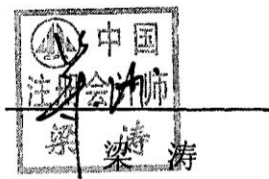 中国
注册会计师
梁涛
梁 涛